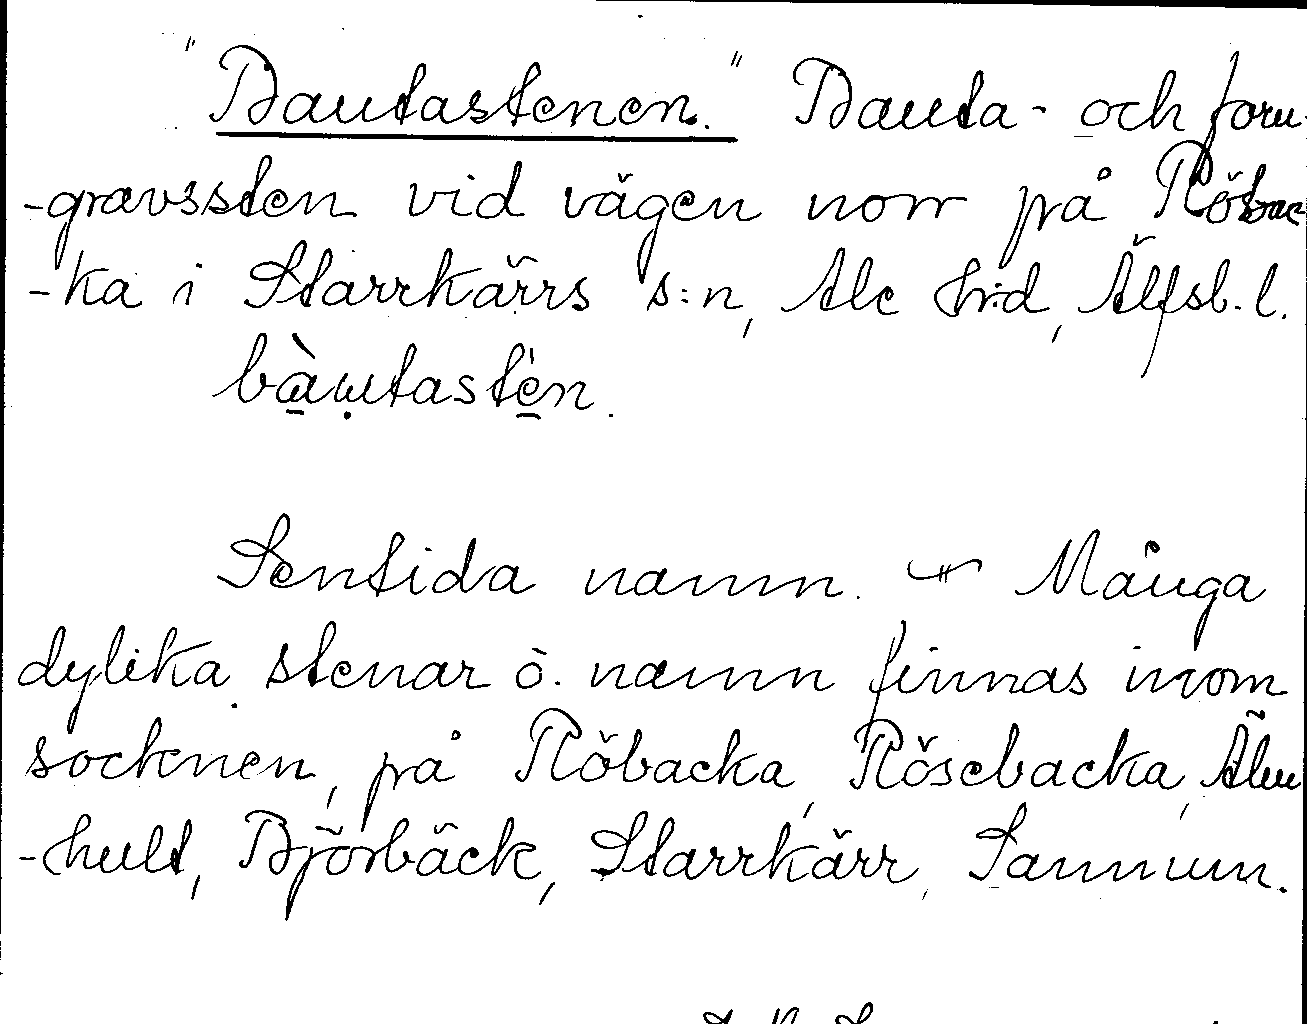 "Bautastenen." Bauta- och forn-
-gravssten vid vägen norr på Röbac-
-ka i Starrkärrs s:n, Ale hrd, Älfsb. l.
bàu̯tastėn.
Sentida namn. Många
dylika stenar o. namn finnas inom
socknen, på Röbacka, Rösebacka, Älm
-hult, Björbäck, Starrkärr, Sannum.